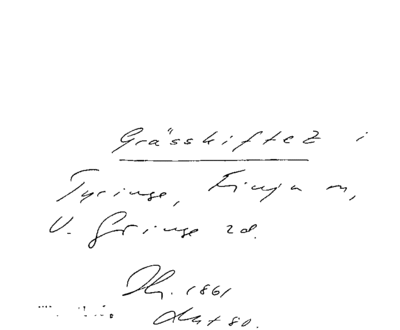 Grässkiftet i
Tyringe, Finja m,
V. Gringe sd.
Ih. 1861
Akt 80.